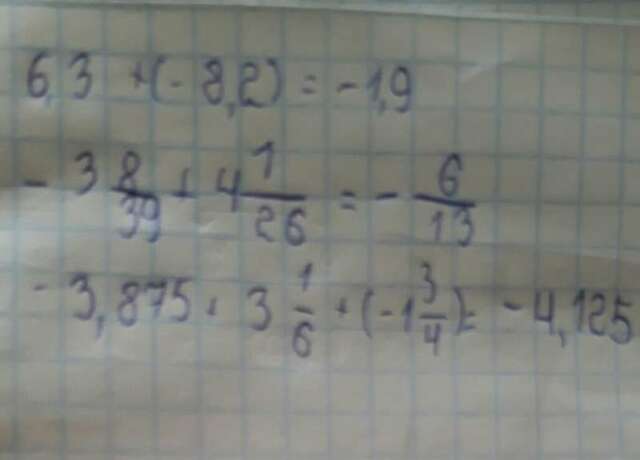 6,3 + (- 8,2) = - 1,9
- 3 8/39 + 4 1/26 = - 6/13
- 3,875 + 3 1/6 + (- 1 3/4) = - 4,125